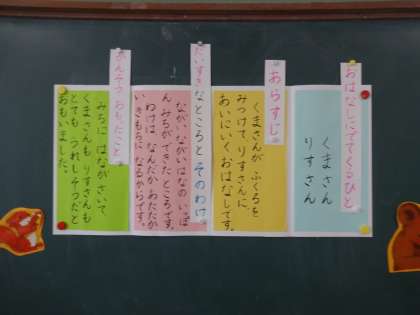 おはなしにでてくるひと
くまさん
りすさん
あらすじ
くまさんが ふくろを
みつけて、りすさんに
あいにいく おはなしです。
だいすきなところと そのわけ
ながい、ながい はなの いっぽ
ん みちが できた ところです。
わけは なんだか あたたか
いきもちに なるからです。
かんそう おもったこと
みちに はながさいて
くまさんも りすさんも
とても うれしそうだと
おもいました。